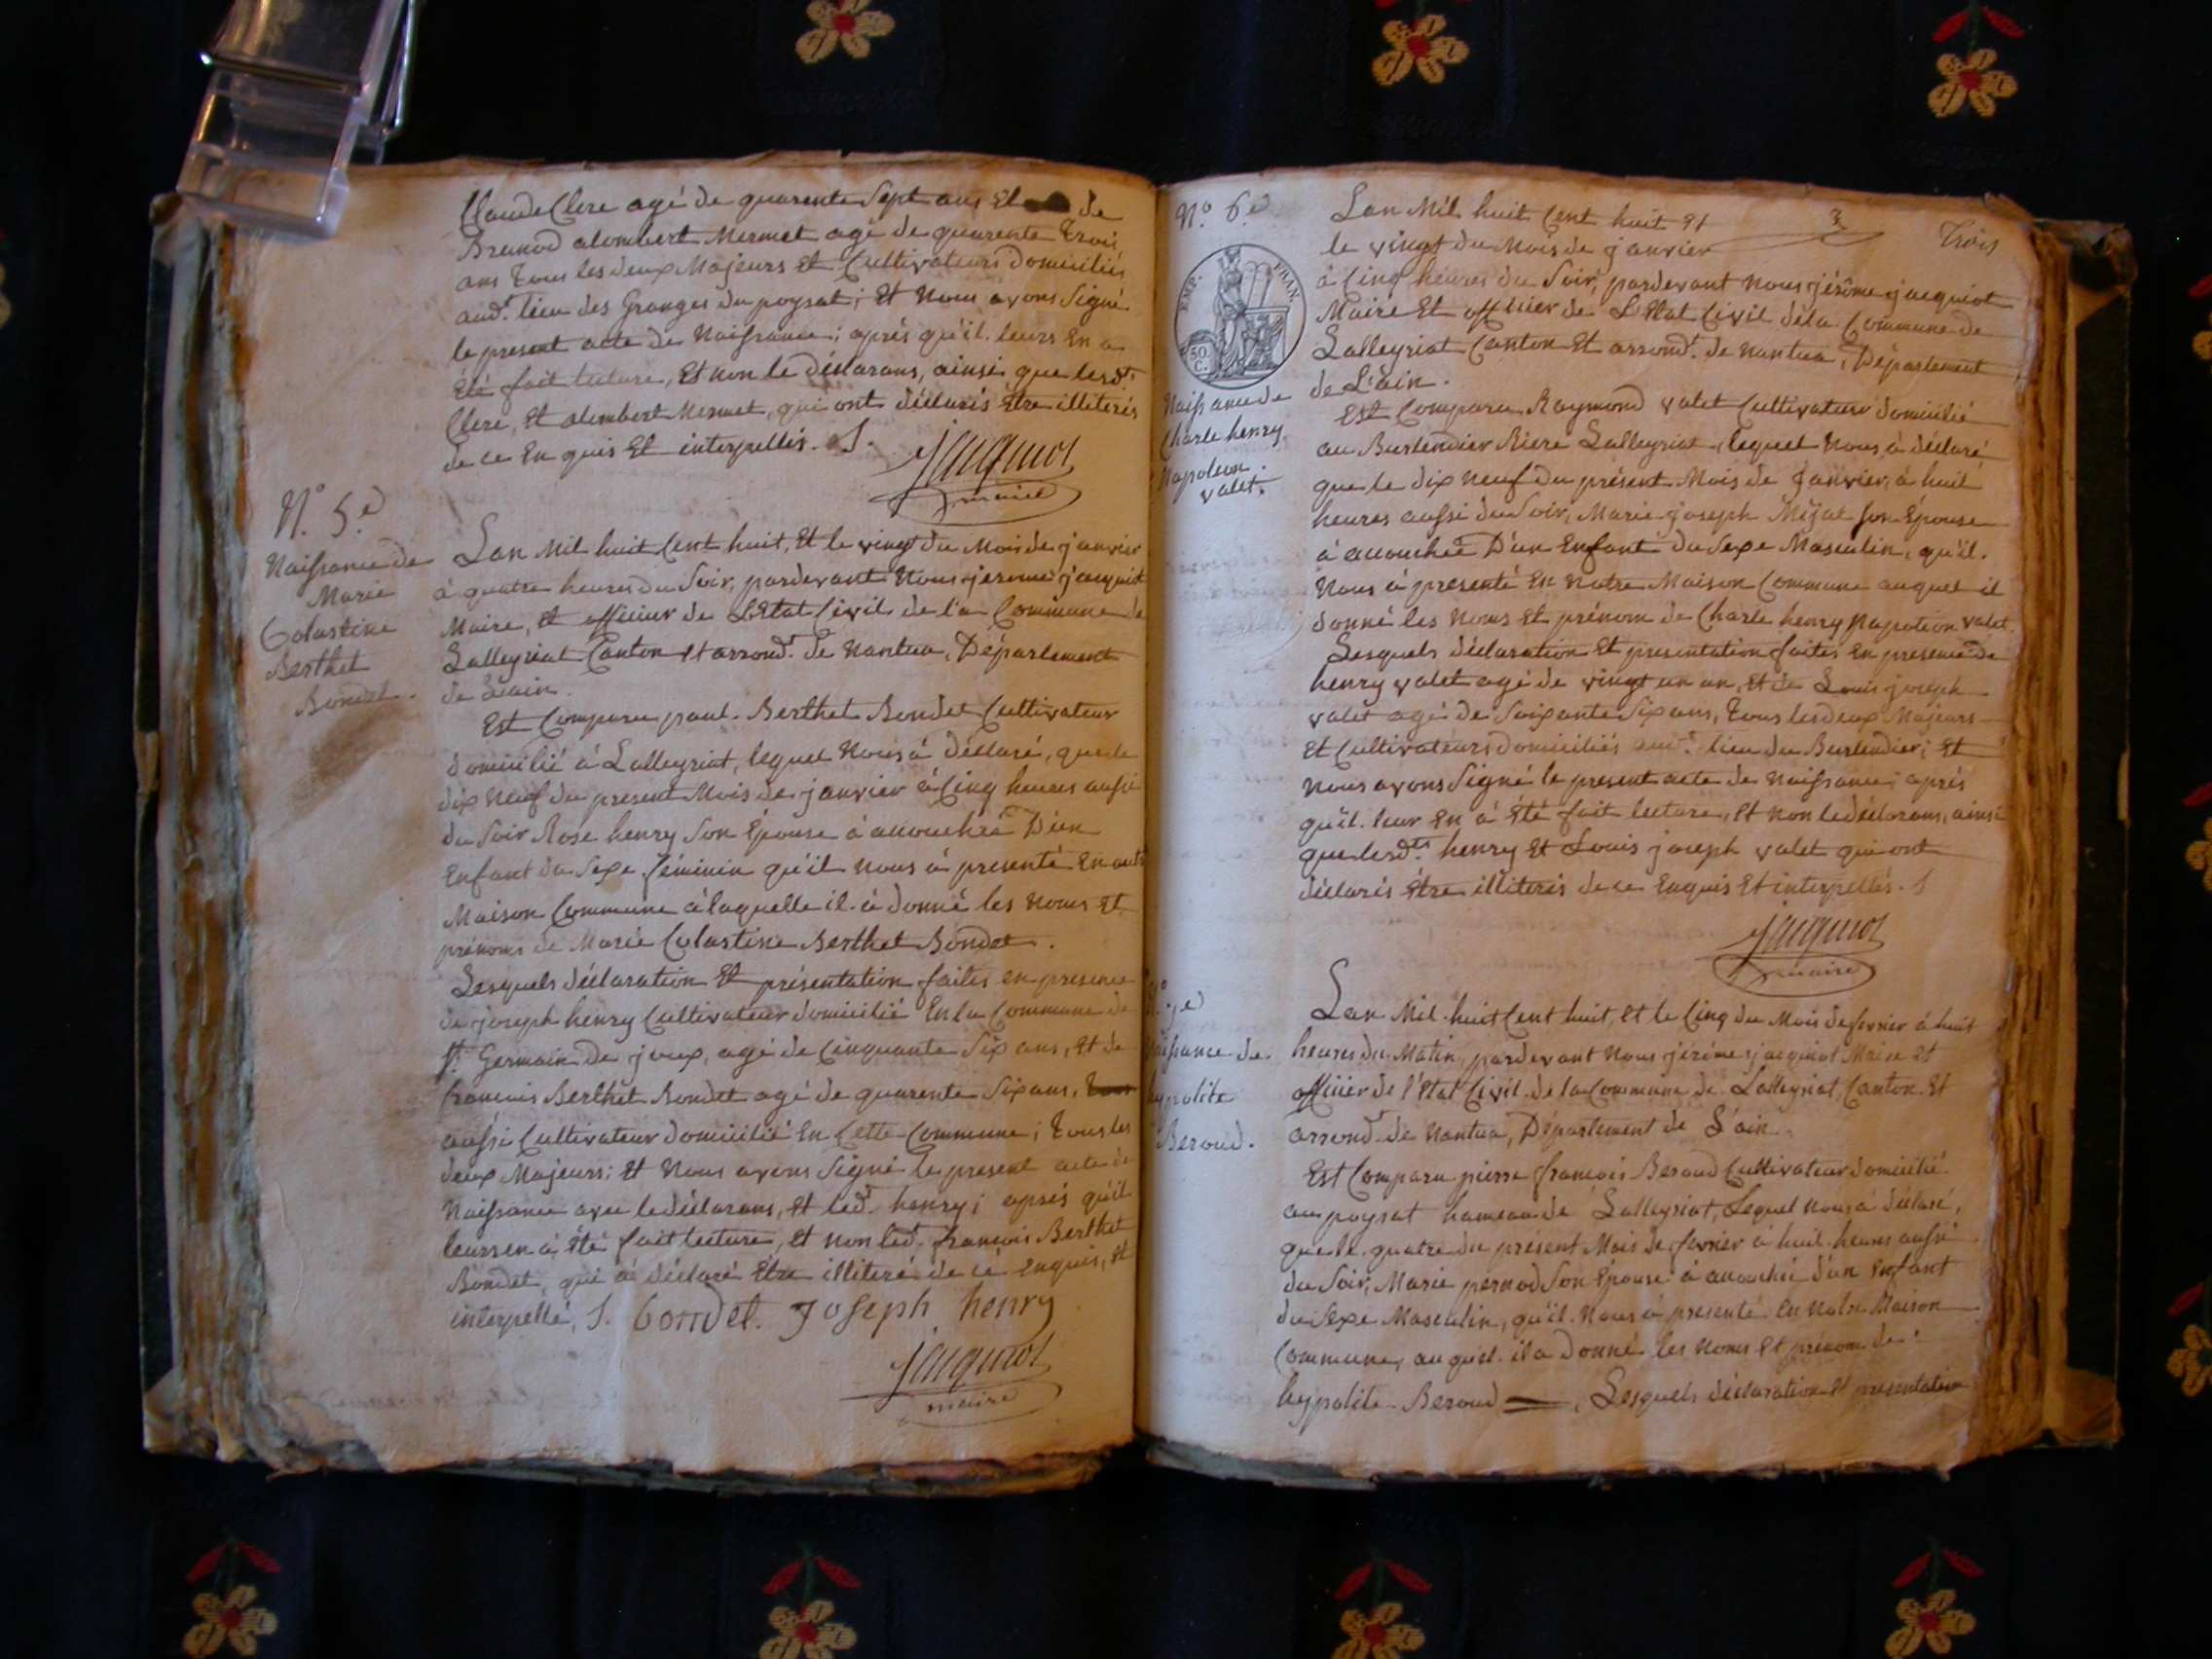 Claude Clere agé de quarente Sept ans Et de
Brunod alombert Mermet agé de quarente Trois
ans Tous les deux Majeurs Et Cultivateurs Domiciliés
aud.t lieu des Granges du poysat; Et Nous avons Signé
le present acte de Naissance; aprés qu'il leurs En a
Eté fait lecture, Et non le déclarans, ainsi que lesd.ts
Clere, Et alombert Mermet, qui ont déclarés Etre illiterés
de ce En quis Et interpellés. S.
Jacquiot
maire
N.o 5.e
Naissance de
Marie
Colastine
Berthet
Bondet.
Lan Mil huit Cent huit, Et le vingt du Mois de janvier
à quatre heures du Soir, pardevant Nous jerome jacquiot
Maire, Et officier de L'Etat Civil de la Commune de
Lalleyriat Canton Et arrond.t de Nantua, Département
de L'ain.
Est Comparu paul Berthet Bondet Cultivateur
domicilié à Lalleyriat, lequel Nous à déclaré, que le
dix Neuf du present Mois de janvier à Cinq heures aussi
du Soir Rose henry Son Epouse à accouchée D'un
Enfant du Sexe féminin qu'il nous à presenté En
Maison Commune à laquelle il à donné les Noms Et
prénoms de Marie Colastine Berthet Bondet.
Lesquels déclaration Et présentation faites en presence
de joseph henry Cultivateur domicilié En la Commune de
S.t Germain de joux, agé de Cinquante Six ans, Et de
francois Berthet Bondet agé de quarente Six ans,
aussi Cultivateur domicilié En Cette Commune; Tous les
deux Majeurs; Et Nous avons Signé le present acte de
Naissance avec le déclarans, Et led.t henry; aprés qu'il
leurs en à Eté fait lecture, Et non led.t francois Berthet
Bondet, qui à déclaré Etre illiteré de ce enquis, Et
interpellé, S. bondet. Joseph henry
Jacquiot
maire
N.o 6.e
EMP. FRAN.
50. C.
Naissance de
Charle henry
Napoleon
valet.
3
Trois
Lan Mil huit Cent huit Et
le vingt du Mois de janvier
à Cinq heures du Soir, pardevant Nous jérôme jacquiot
Maire Et officier de L'Etat Civil déla Commune de
Lalleyriat Canton Et arrond.t de Nantua, Département
de L'ain.
Est Comparu Raymond valet Cultivateur domicilié
au Burlendier Riere Lalleyriat, lequel Nous à déclaré
que le dix Neuf du présent Mois de Janvier, à huit
heures aussi du Soir, Marie joseph Mejat Son Epouse
à accouchée D'un Enfant du Sexe Masculin, qu'il
Nous à presenté En Notre Maison Commune auquel il
donné les Noms Et prénom de Charle henry Napoleon valet.
Lesquels déclaration Et presentation faites En presence de
henry valet agé de vingt un an, Et de Louis joseph
valet agé de Soixante Six ans, Tous les deux Majeurs
Et Cultivateurs domiciliés aud.t lieu du Burlendier; Et
Nous avons Signé le present acte de Naissance; aprés
qu'il leur En à Eté fait lecture, Et non le déclarans, ainsi
que lesd.ts henry Et Louis joseph valet qui ont
déclarés Etre illiterés de ce Enquis Et interpellés. S
Jacquiot
maire
N.o 7.e
Naissance de
hypolite
Beroud.
Lan Mil huit Cent huit, Et le Cinq du Mois de fevrier à huit
heures du Matin, pardevant Nous jérôme jacquiot Maire Et
officier de l'Etat Civil de la Commune de Lalleyriat, Canton Et
arrond.t de Nantua, Département de L'ain.
Est Comparu pierre francois Beroud Cultivateur domicilié
au poysat hameau de Lalleyriat, Lequel nous à déclaré,
que le quatre du présent Mois de fevrier à huit heures aussi
du Soir, Marie pernod Son Epouse à accouchée d'un Enfant
du Sexe Masculin, qu'il Nous à presenté En Notre Maison
Commune, auquel il a Donné les Noms Et prénom de
hypolite Beroud, Lesquels déclaration Et presentation